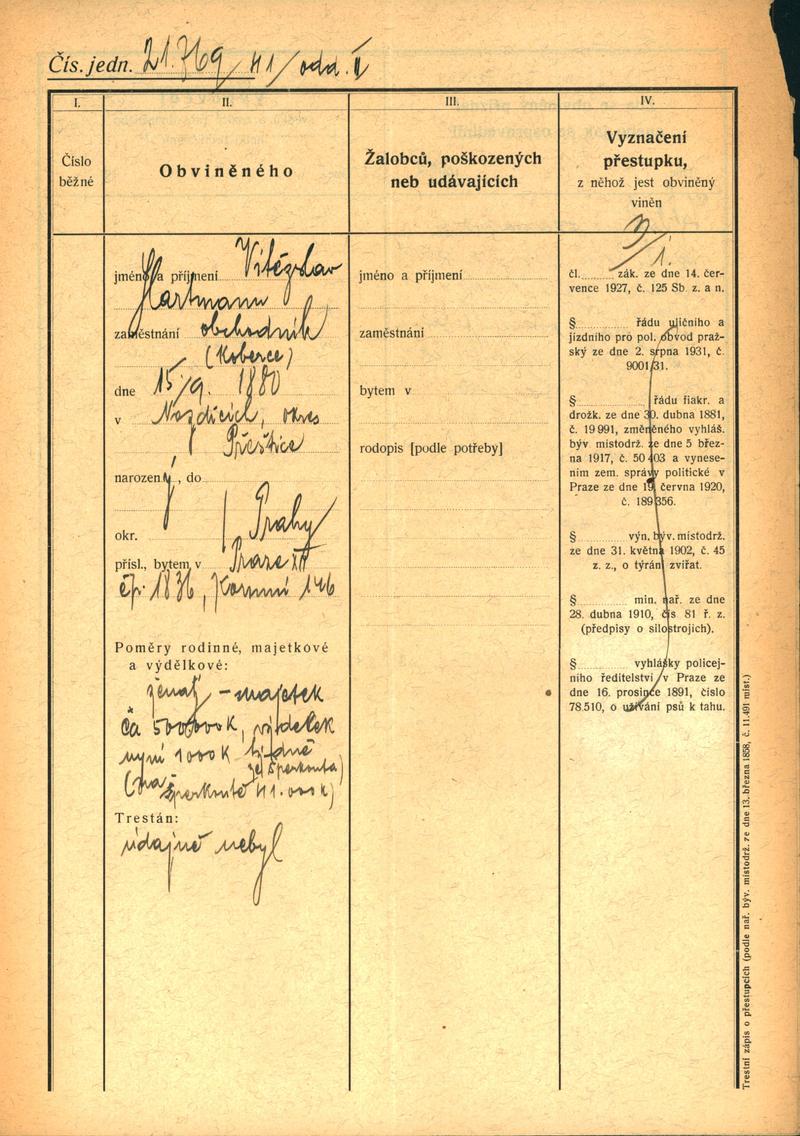 Čís. jedn. 21.769/41/odd. II
I.
Číslo
běžné
II.
Obviněného
III.
Žalobců, poškozených
neb udávajících
IV.
Vyznačení
přestupku,
z něhož jest obviněný
viněn
jméno a příjmení Vítězslav
Hartmann
zaměstnání obchodník
(koberce)
dne 15/9. 1880
v okres
Přeštice
narozený, do
okr. Prahy
přísl., bytem v Praze XII
čp. 1836, 146
Poměry rodinné, majetkové
a výdělkové:
ženatý – majetek
ča 500000 K, výdělek
nyní 1000 K týdně
ze šperkonta)
(na
šperkontě 41.000 K)
Trestán:
údajně nebyl
jméno a příjmení
zaměstnání
bytem v
rodopis [podle potřeby]
3/1.
čl. zák. ze dne 14. čer-
vence 1927, č. 125 Sb. z. a n.
§ řádu uličního a
jízdního pro pol. obvod praž-
ský ze dne 2. srpna 1931, č.
9001/31.
§ řádu fiakr. a
drožk. ze dne 30. dubna 1881,
č. 19 991, změněného vyhláš.
býv. místodrž. ze dne 5 břez-
na 1917, č. 50 403 a vynese-
ním zem. správy politické v
Praze ze dne 19. června 1920,
č. 189 356.
§ výn. býv. místodrž.
ze dne 31. května 1902, č. 45
z. z., o týrání zvířat.
§ min. nař. ze dne
28. dubna 1910, čís 81 ř. z.
(předpisy o silostrojích).
§ vyhlášky policej-
ního ředitelství v Praze ze
dne 16. prosince 1891, číslo
78.510, o užívání psů k tahu.
Trestní zápis o přestupcích (podle nař. býv. místodrž. ze dne 13. března 1858, č. 11.491 míst.)